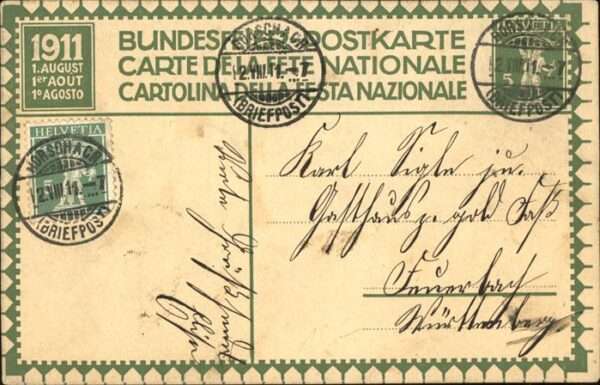 1911
1. AUGUST
1er AOUT
1º AGOSTO
BUNDESFEIER-POSTKARTE
CARTE DE LA FETE NATIONALE
CARTOLINA DELLA FESTA NAZIONALE
RORSCHACH
2.VIII.11.-7
(BRIEFPOST)
RORSCHACH
2.VIII.11.-7
(BRIEFPOST)
5
HELVETIA
RORSCHACH
2.VIII.11.-7
(BRIEFPOST)
Karl Sigle jr.
Gasthaus z. gold Faß
Feuerbach
Württemberg.